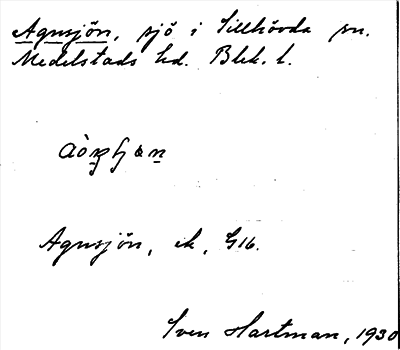 Agnsjön, sjö i Tillhövda sn.
Medelstads hd. Blek. l.
Agnsjön, ek, G16.
Sven Hartman, 1930